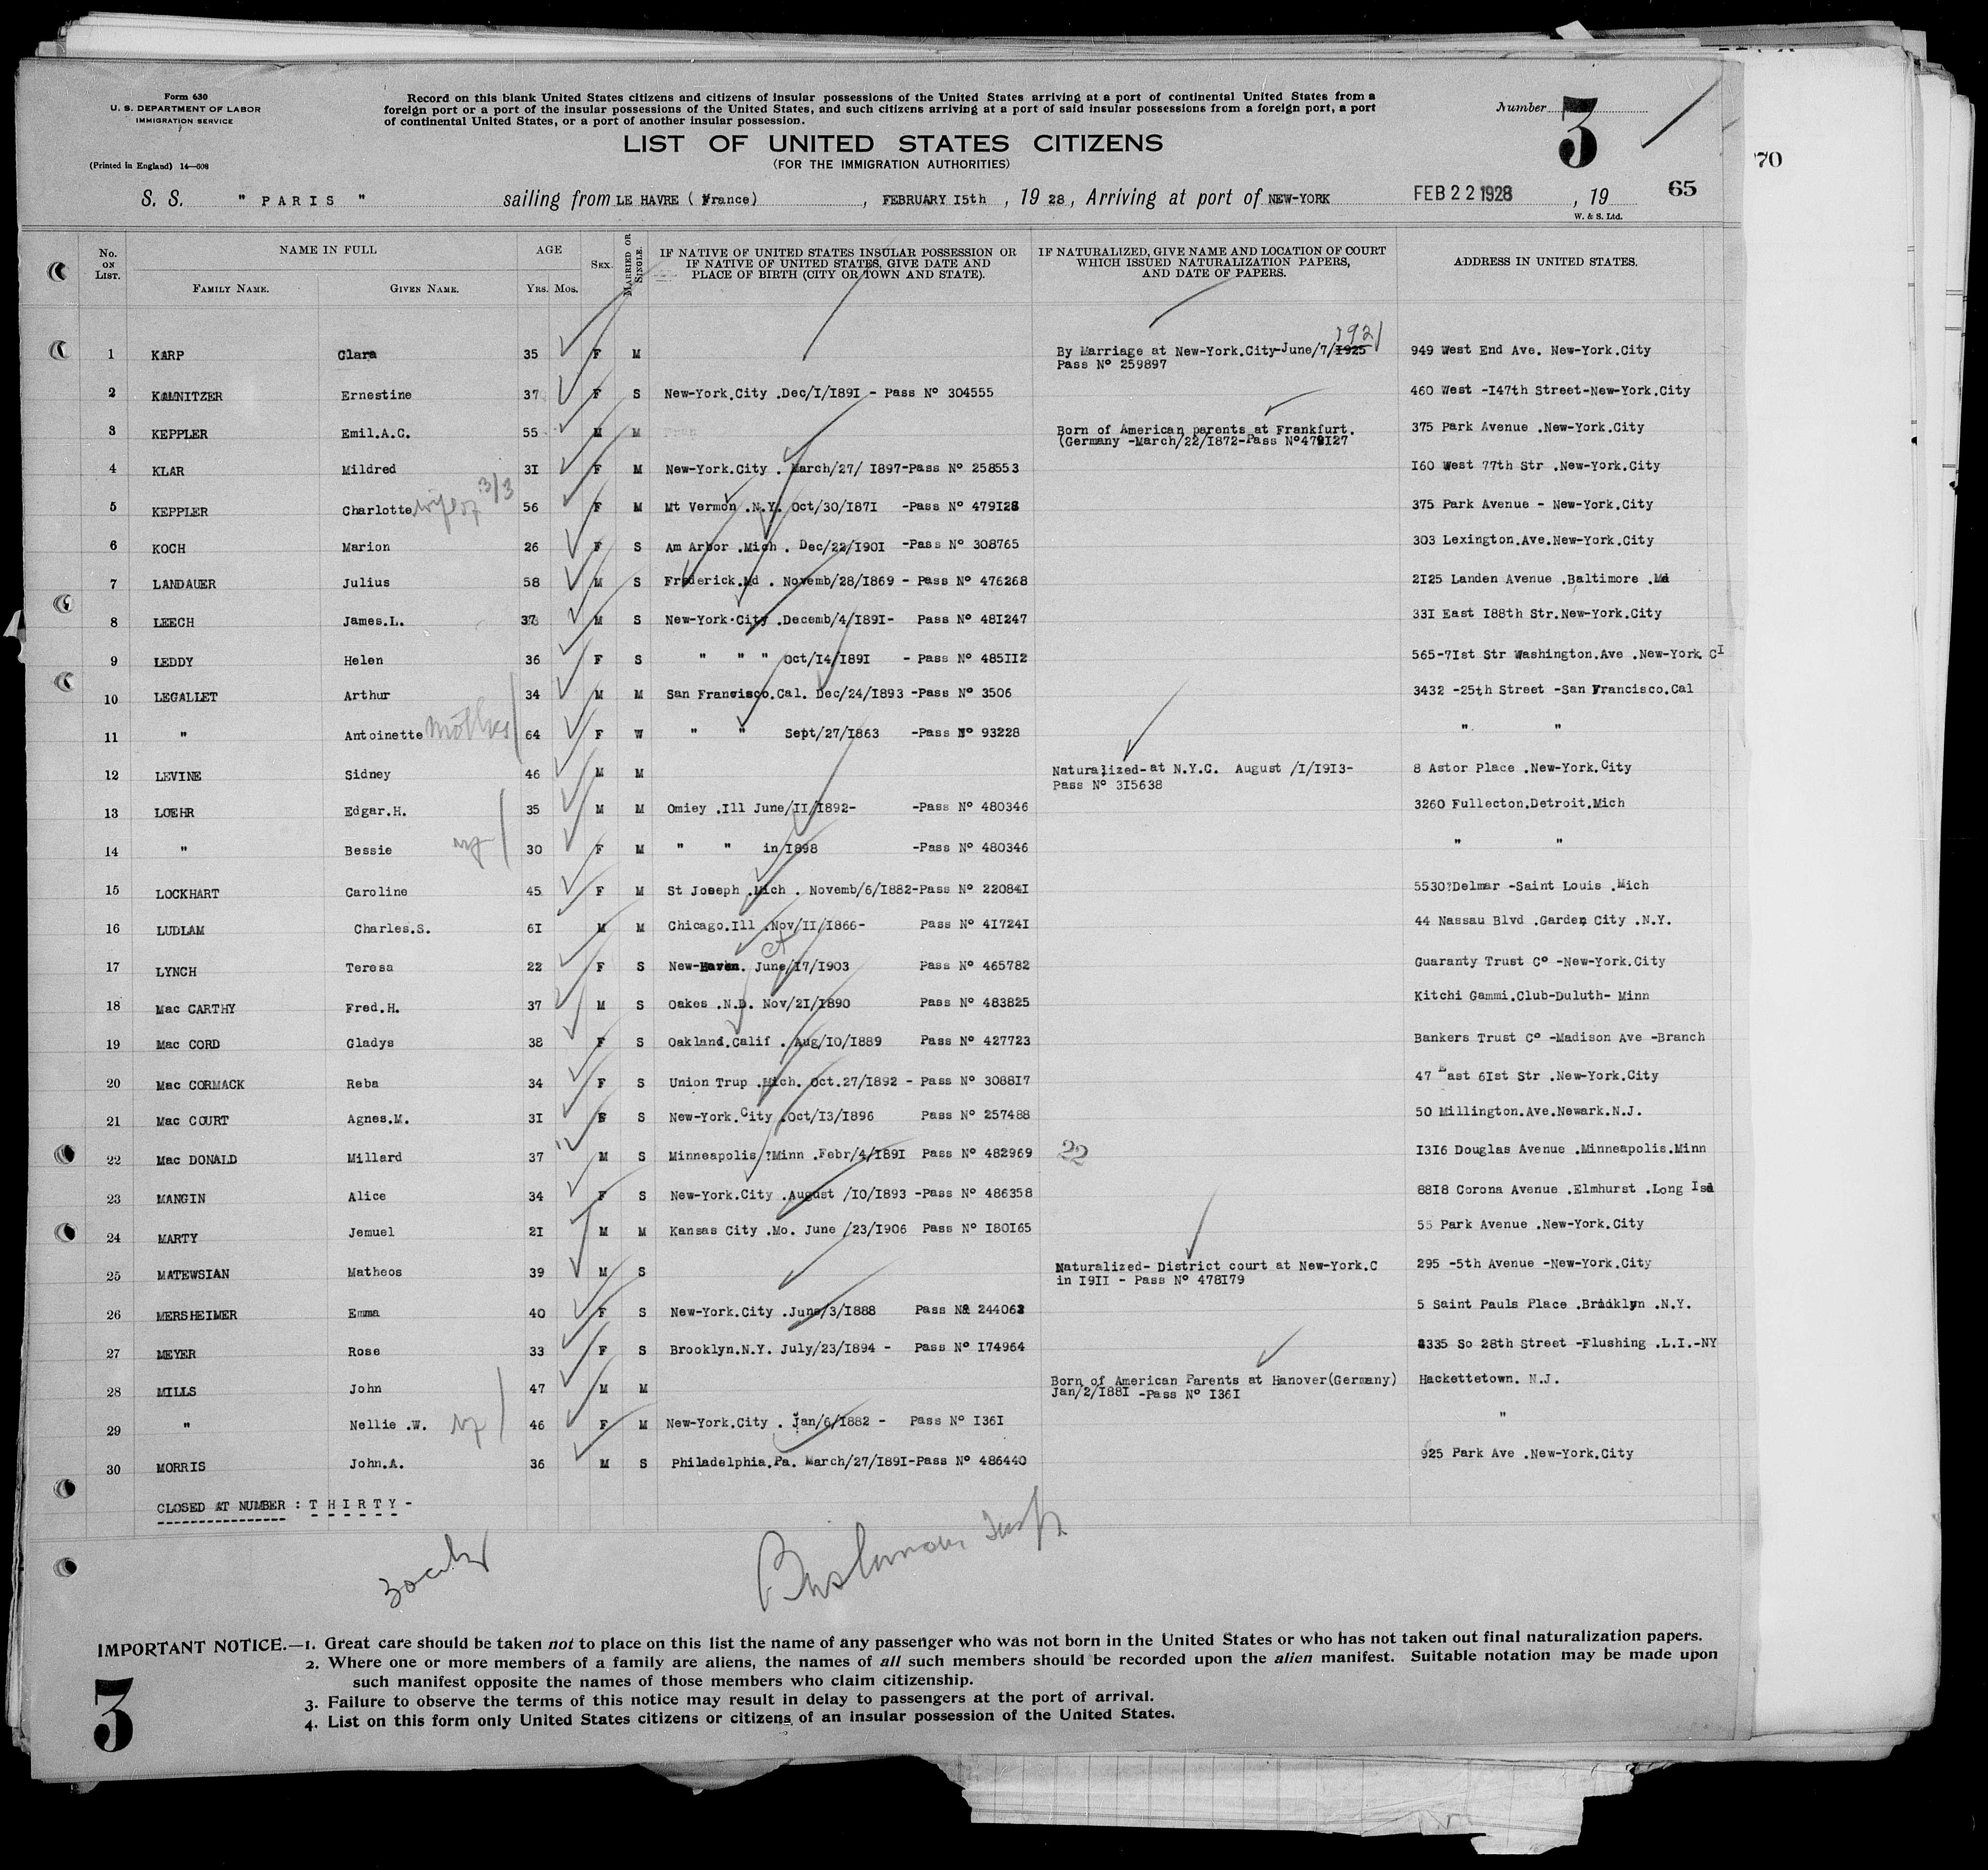 Form 630
U. S. DEPARTMENT OF LABOR
IMMIGRATION SERVICE
(Printed in England) 14—608
Record on this blank United States citizens and citizens of insular possessions of the United States arriving at a port of continental United States from a
foreign port or a port of the insular possessions of the United States, and such citizens arriving at a port of said insular possessions from a foreign port, a port
of continental United States, or a port of another insular possession.
LIST OF UNITED STATES CITIZENS
(FOR THE IMMIGRATION AUTHORITIES)
Number 3
70
S. S. " PARIS " sailing from LE HAVRE ( France) , FEBRUARY I5th , 19 28 , Arriving at port of NEW-YORK FEB 22 1928 , 19 65
W. & S. Ltd.
No. ON LIST. NAME IN FULL AGE SEX. MARRIED OR SINGLE. IF NATIVE OF UNITED STATES INSULAR POSSESSION OR IF NATIVE OF UNITED STATES, GIVE DATE AND PLACE OF BIRTH (CITY OR TOWN AND STATE). IF NATURALIZED, GIVE NAME AND LOCATION OF COURT WHICH ISSUED NATURALIZATION PAPERS, AND DATE OF PAPERS. ADDRESS IN UNITED STATES.
FAMILY NAME. GIVEN NAME. YRS. MOS.
1 KARP Clara 35 F M By Marriage at New-York.City-June/7/I925 1921 949 West End Ave. New-York.City
Pass Nº 259897
2 KAMNITZER Ernestine 37 F S New-York.City .Dec/I/I89I - Pass Nº 304555 460 West -I47th Street-New-York.City
3 KEPPLER Emil.A.C. 55 M M Born of American parents at Frankfurt. 375 Park Avenue .New-York.City
(Germany -March/22/I872-Pass Nº479I27
4 KLAR Mildred 3I F M New-York.City . March/27/ I897-Pass Nº 258553 I60 West 77th Str .New-York.City
5 KEPPLER Charlotte wife of 3/3 56 F M Mt Vermon .N.Y. Oct/30/I87I -Pass Nº 479I28 375 Park Avenue - New-York.City
6 KOCH Marion 26 F S Am Arbor .Mich . Dec/22/I90I -Pass Nº 308765 303 Lexington.Ave.New-York.City
7 LANDAUER Julius 58 M S Frederick.Md . Novemb/28/I869 - Pass Nº 476268 2I25 Landen Avenue .Baltimore .Md
8 LEECH James.L. 37 M S New-York.City .Decemb/4/I89I- Pass Nº 48I247 33I East I88th Str.New-York.City
9 LEDDY Helen 36 F S " " " Oct/I4/I89I - Pass Nº 485II2 565-7Ist Str Washington.Ave .New-York. CI
10 LEGALLET Arthur 34 M M San Francisco.Cal. Dec/24/I893 -Pass Nº 3506 3432 -25th Street -San Francisco.Cal
11 " Antoinette Mother 64 F W " " Sept/27/I863 -Pass Nº 93228 " "
12 LEVINE Sidney 46 M M Naturalized-at N.Y.C. August /I/I9I3- 8 Astor Place .New-York.City
Pass Nº 3I5638
13 LOEHR Edgar.H. 35 M M Omiey .Ill June/II/I892- -Pass Nº 480346 3260 Fullecton.Detroit.Mich
14 " Bessie wf 30 F M " " in I898 -Pass Nº 480346 " "
15 LOCKHART Caroline 45 F M St Joseph .Mich . Novemb/6/I882-Pass Nº 22084I 5530?Delmar -Saint Louis .Mich
16 LUDLAM Charles.S. 6I M M Chicago.Ill .Nov/II/I866- Pass Nº 4I724I 44 Nassau Blvd .Garden City .N.Y.
17 LYNCH Teresa 22 F S New-Haven. Ct June/I7/I903 Pass Nº 465782 Guaranty Trust Cº -New-York.City
18 Mac CARTHY Fred.H. 37 M S Oakes .N.D. Nov/2I/I890 Pass Nº 483825 Kitchi Gammi.Club-Duluth- Minn
19 Mac CORD Gladys 38 F S Oakland.Calif . Aug/IO/I889 Pass Nº 427723 Bankers Trust Cº -Madison Ave -Branch
20 Mac CORMACK Reba 34 F S Union Trup .Mich. Oct.27/I892 - Pass Nº 3088I7 47 East 6Ist Str .New-York.City
21 Mac COURT Agnes.M. 3I F S New-York.City .Oct/I3/I896 Pass Nº 257488 50 Millington.Ave.Newark.N.J.
22 Mac DONALD Millard 37 M S Minneapolis ?Minn .Febr/4/I89I Pass Nº 482969 22 I3I6 Douglas Avenue .Minneapolis.Minn
23 MANGIN Alice 34 F S New-York.City .August /IO/I893 -Pass Nº 486358 88I8 Corona Avenue .Elmhurst .Long Isd
24 MARTY Jemuel 2I M M Kansas City .Mo. June /23/I906 Pass Nº I80I65 55 Park Avenue .New-York.City
25 MATEWSIAN Matheos 39 M S Naturalized- District court at New-York.C 295 -5th Avenue -New-York.City
in I9II - Pass Nº 478I79
26 MERSHEIMER Emma 40 F S New-York.City .June/3/I888 Pass Nº 244062 5 Saint Pauls Place .Brooklyn .N.Y.
27 MEYER Rose 33 F S Brooklyn.N.Y. July/23/I894 - Pass Nº I74964 4335 So 28th Street -Flushing .L.I.-NY
28 MILLS John 47 M M Born of American Parents at Hanover(Germany) Hackettetown. N.J.
Jan/2/I88I -Pass Nº I36I
29 " Nellie .W. wf 46 F M New-York.City . Jan/6/I882 - Pass Nº I36I "
30 MORRIS John.A. 36 M S Philadelphia.Pa. March/27/I89I-Pass Nº 486440 925 Park Ave .New-York.City
CLOSED AT NUMBER : T H I R T Y -
IMPORTANT NOTICE.—1. Great care should be taken not to place on this list the name of any passenger who was not born in the United States or who has not taken out final naturalization papers.
2. Where one or more members of a family are aliens, the names of all such members should be recorded upon the alien manifest. Suitable notation may be made upon
such manifest opposite the names of those members who claim citizenship.
3. Failure to observe the terms of this notice may result in delay to passengers at the port of arrival.
4. List on this form only United States citizens or citizens of an insular possession of the United States.
3